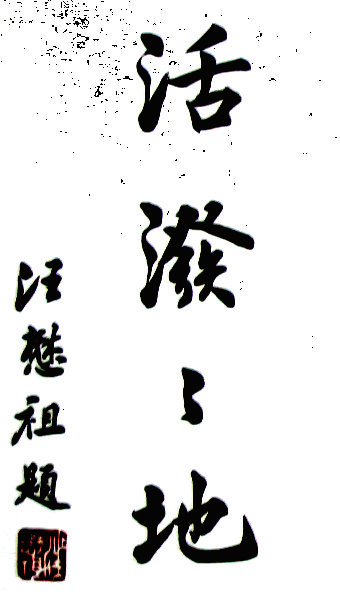 活潑〻地
汪懋祖題